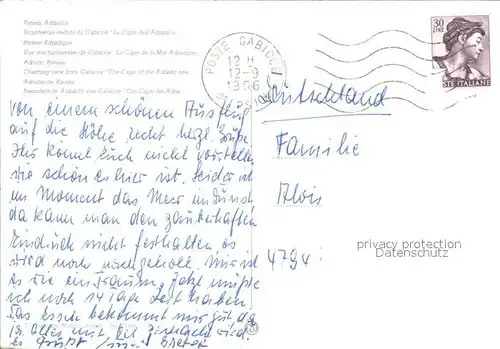 Riviera Adriatica
Incantevole veduta da Gabicce "La Capri dell'Adriatico"
Riviera Adriatique
Vue enchanteresse de Gabicce "La Capri de la Mer Adriatique
Adriatic Riviera
Charming view from Gabicce "The Capri of the Adriatic sea
Adriatische Riviera
Bezaubernde Aussicht von Gabicce "Das Capri der Adria
POSTE GABICCE
12 H
12-9
1966
30
LIRE
POSTE ITALIANE
Deutschland
Familie
Alois
4794
privacy protection
Datenschutz
Von einem schönen Ausflug
auf die Höhe recht herzl. Grüße.
Ihr könnt Euch nicht vorstellen
wie schön es hier ist. Leider ist
im Moment das Meer in Dunst
da kann man den zauberhaften
Eindruck nicht festhalten es
wird noch nachgeholt. Mir ist
es wie ein Traum. Jetzt müßte
ich noch 14 Tage Zeit haben.
Das Essen bekommt mir gut da
ja alles mit Öl gemacht wird.
Es grüßt